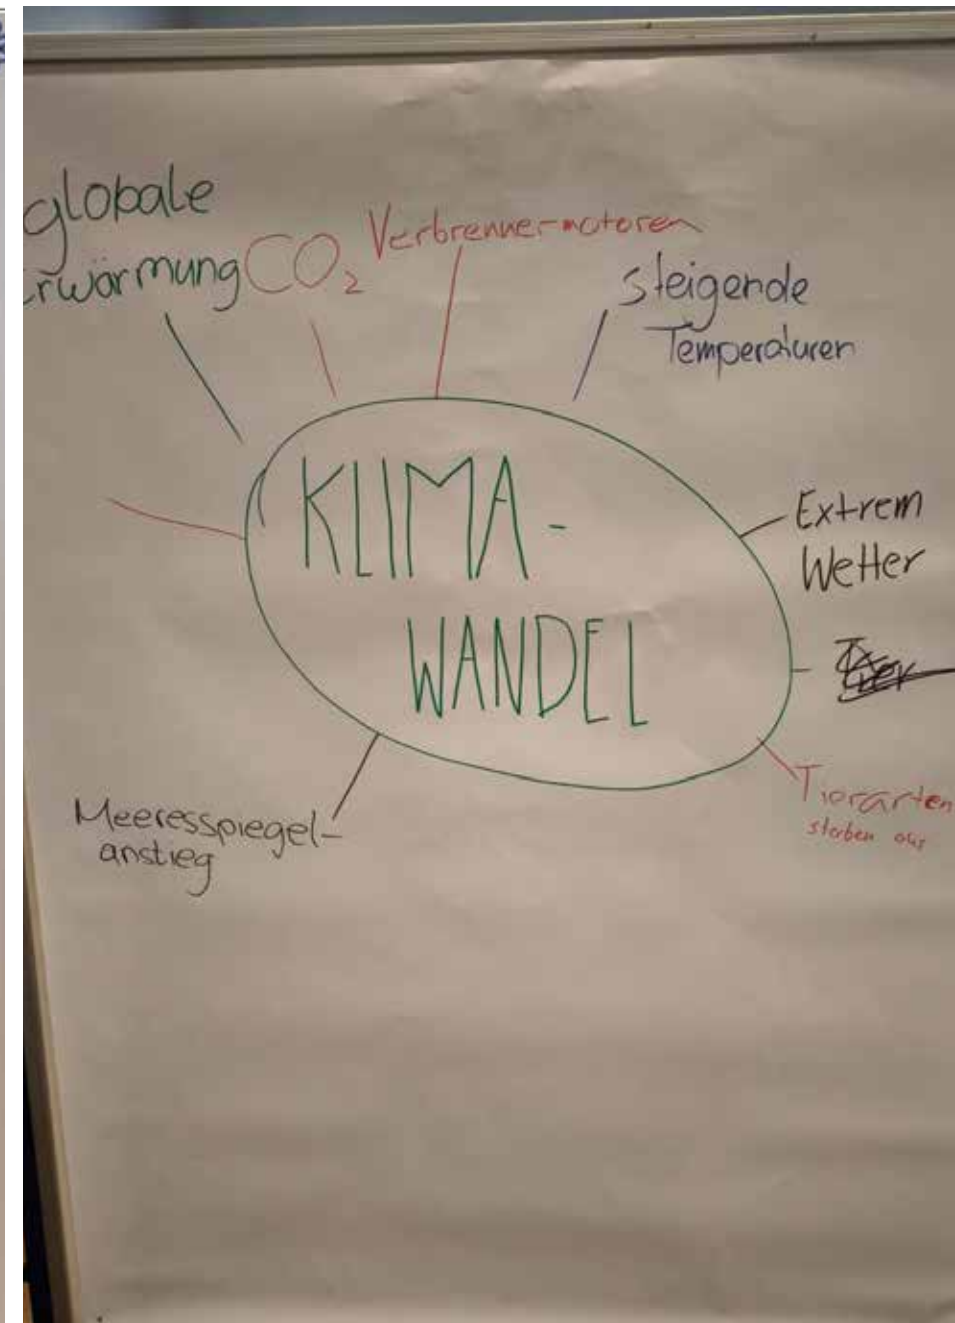 globale
Erwärmung
CO₂
Verbrennermotoren
steigende
Temperaturen
KLIMA-
WANDEL
Extrem
Wetter
Tierarten
sterben aus
Meeresspiegel-
anstieg